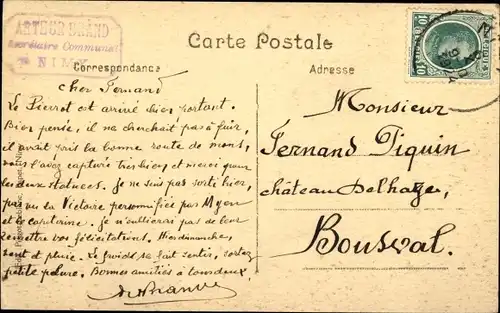 ARTHUR BRAND
Secrétaire Communal
NIMY
Carte Postale
Correspondance
Adresse
10 10
Cher Fernand
Le Pierrot est arrivé bien portant.
Bien pensé, il ne cherchait pas à fuir,
il avait pris la bonne route de mons,
vous l'avez capturé très bien et merci pour
les deux astuces. Je ne suis pas sorti hier,
pas vu la Victoire personnifiée par Myon
et le capiturine. Je n'oublierai pas de leur
remettre vos félicitations. Hier dimanche,
vent et pluie. Le froid se fait sentir, sortez
petite pelure. Bonnes amitiés à tous deux
Monsieur
Fernand Piquin
château Delhaye,
Bousval.